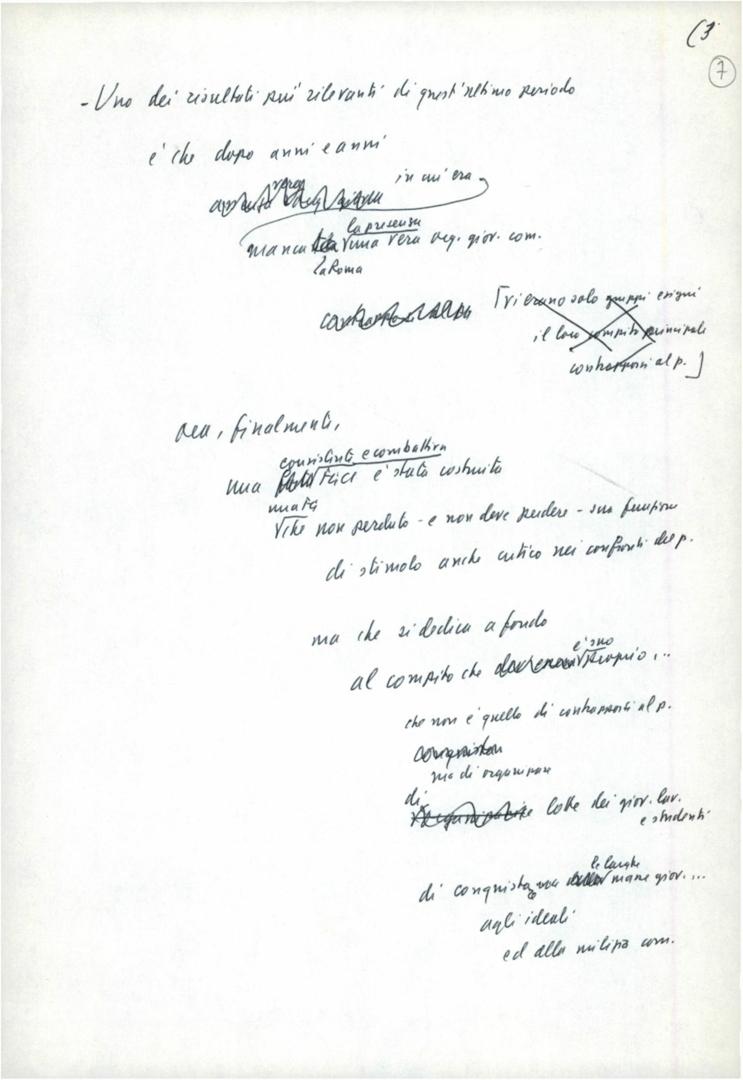 (3
7
- Uno dei risultati più rilevanti di quest'ultimo periodo
è che dopo anni e anni
in cui era
mancata la presenza
a Roma
una vera org. giov. com.
[vi erano solo gruppi esigui
il loro compito principale
contrapporsi al p.]
ora, finalmente,
consistente e combattiva
una FGCI è stata costruita
una FG
che non perduto - e non deve perdere - sua funzione
di stimolo anche critico nei confronti del p.
ma che si dedica a fondo
al compito che è suo proprio...
che non è quello di contrapporsi al p.
ma di organizzare
di lotte dei giov. lav.
e studenti
di conquistare le larghe masse giov....
agli ideali
ed alla milizia com.